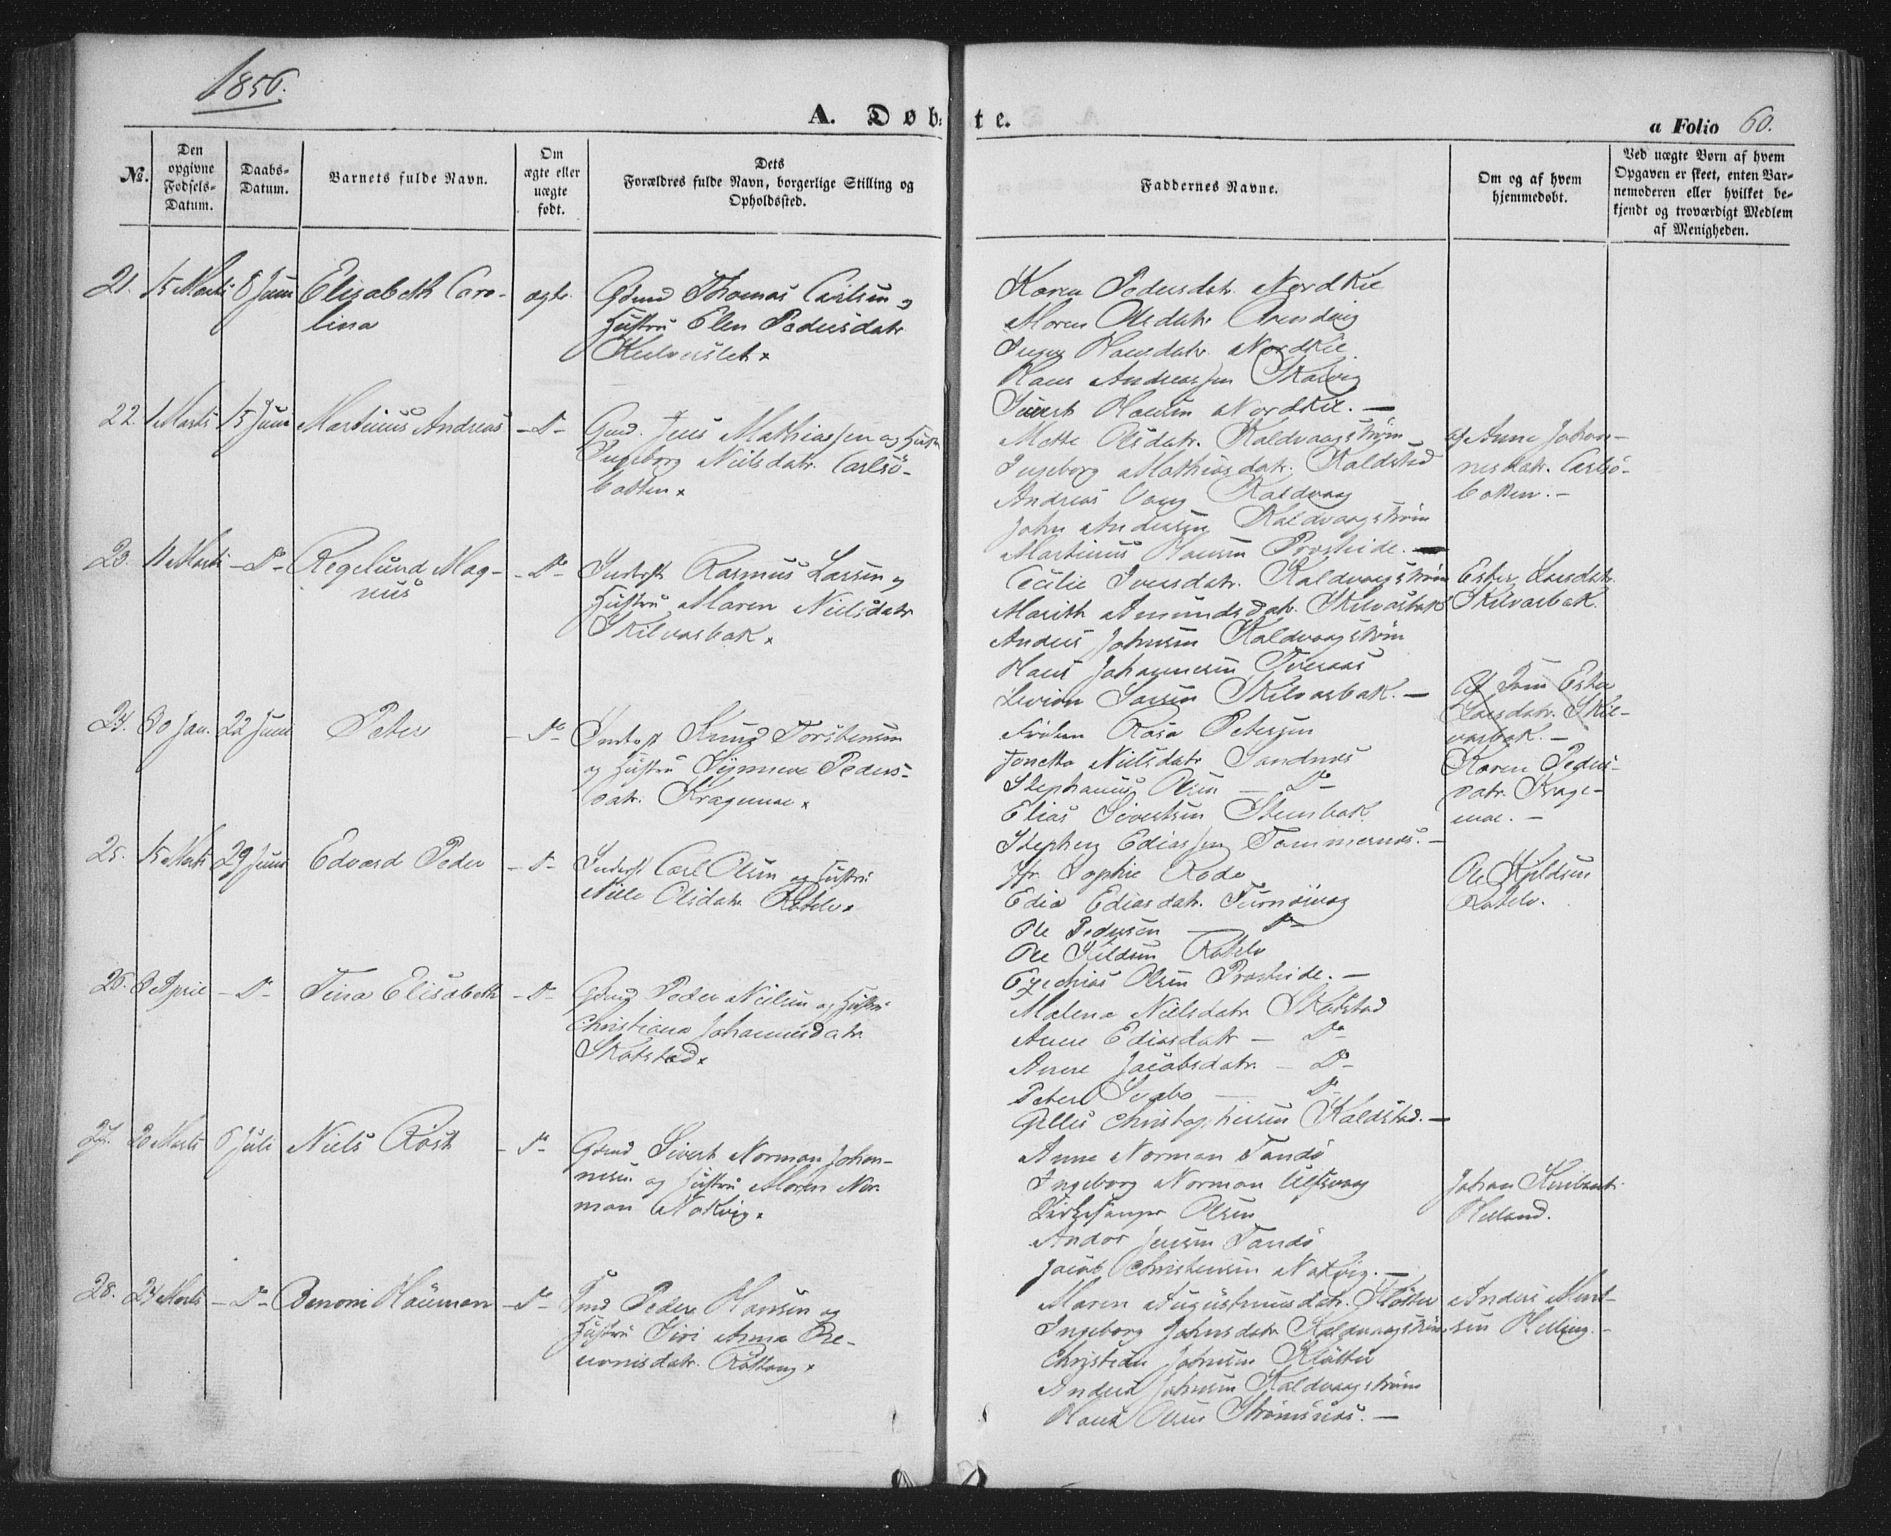 1856.
A. Døbte.
a Folio 60.
No.
Den opgivne Fødsels-Datum.
Daabs-Datum.
Barnets fulde Navn.
Om ægte eller uægte født.
Dets Forældres fulde Navn, borgerlige Stilling og Opholdssted.
Faddernes Navne.
Om og af hvem hjemmedøbt.
Ved uægte Børn af hvem Opgaven er skeet, enten Barnemoderen eller hvilket bekjendt og troværdigt Medlem af Menigheden.
21. 15 Marts 8 Juni Elisabeth Caro-
lina
ægte.
Gdmd Thomas Carlsen og
Hustru Elen Pedersdatr
Karen Pedersdatr. Nordkil
Maren Olsdatr
Inger Hansdatr. Nordkil.
Hans Andreassen Skarvig
Sivert Hansen Nordkil. —
22. 1 Marts 15 Juni Martinus Andreas - Do -
Gmd. Jens Mathiassen og Hustru
Ingeborg Nielsdatr. Carlsö-
botten
Mette Olsdatr. Kaldvaagstrøm
Ingeborg Mathiasdatr. Kaldstad
Andreas Kaldvaag
John Andersen Kaldvaagstrøm
Martinus Hansen Prosteide. —
af Anne Johan-
nesdatr. Carlsö-
botten. -
23. 11 Marts - Do - Regelund Mag-
nus
- Do -
Inderst Rasmus Larsen og
Hustru Maren Nielsdatr
Skilvasbak
Cecilie Iversdatr. Kaldvaagstrøm
Marith Amundsdatr. Skilvasbak
Anders Johnsen Kaldvaagstrøm
Hans Johannesen Tveraas
Larsen Skilvasbak. —
Ester Larsdatr.
Skilvasbak.
24. 30 Jan. 22 Juni Peter - Do
Inderst Torstensen
og Hustru Synneve Peders-
datr. Kragemoe
Frøken Rosa Petersen
Jonetta Nielsdatr Sandnes
Stephanus Olsen — Do
Elias Sivertsen Stenbak
Stephen Ediassen Tømmernes. -
Af Ester
Larsdatr. Skil-
vasbak. -
Karen Peders-
datr. Krage-
moe. -
25. 15 Marts 29 Juni Edvard Peder - Do -
Inderst Carl Olsen og Hustru
Olsdatr
Jfr. Sophie Rode
Edia Ediasdatr.
Ole Pedersen — Do
Ole
Olsen Prosteide. —
Ole
26. 8 April - Do - Tina Elisabeth - Do -
Gdmd Peder Nielsen og Hustru
Christiana Johannesdatr.
Skotstad
Malena Nielsdatr Skotstad
Anne Ediasdatr — Do
Anne Jacobsdatr. - Do -
Peter — Do
Christophersen Kaldstad. —
27. 20 Marts 6 Juli Niels Röst - Do -
Gdmd Sivert Norman Johan-
nesen og Hustru Maren Nor-
man Nakvig
Anne Norman Tandö
Ingeborg Norman Ulfsvaag
Kirkesanger Olsen
Andor Jensen Tandö
Jacob Christensen Nakvig. —
Johan
Helland.
28. 24 Marts - Do - Benoni Hauman - Do -
Gmd Peder Hansen og
Hustru Siri Anna Be-
nonisdatr. Röttang
Maren Augustinusdatr. Kløtter
Ingeborg Johnsdatr. Kaldvaagstrøm
Christian Johnsen Kløtter
Anders Johnsen Kaldvaagstrøm
Hans Olsen Strømsnes. —
Anders Mort-
sen Helling.